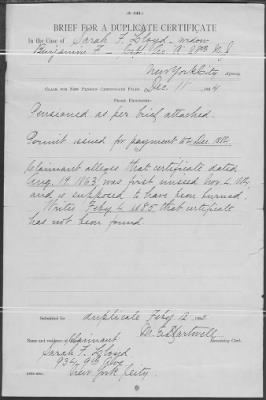 BRIEF FOR A DUPLICATE CERTIFICATE
In the Case of Sarah F. Lloyd, widow
Benjamin F
New York City Agency,
Claim for New Pension Certificate Filed Dec 11
From Evidence:
Pensioned as per brief attached.
Permit issued for payment Dec.
Claimant alleges that certificate dated
Aug. 19. 1863, was first missed Nov. 4.
and is supposed to have been burned.
Writes Feby 4 1885 that certificate
has not been found
Submitted for duplicate Feby 12
Examining Clerk.
Name and residence of Claimant
Sarah F. Lloyd
934 9th Ave
New York City.